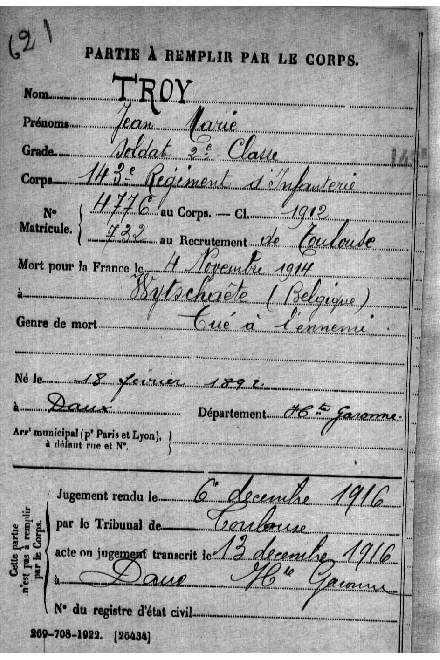 (621
PARTIE À REMPLIR PAR LE CORPS.
Nom TROY
Prénoms Jean Marie
Grade Soldat 2e Classe
Corps 143e Régiment d'Infanterie
N° Matricule. { 4776 au Corps. — Cl. 1912
722 au Recrutement de Toulouse
Mort pour la France le 4 Novembre 1914
à Wytschaëte (Belgique)
Genre de mort Tué à l'ennemi.
Né le 18 février 1892
à Daux Département Hte Garonne.
Arrt municipal (pr Paris et Lyon), à défaut rue et N°. }
Cette partie n'est pas à remplir par le Corps.
Jugement rendu le 6 décembre 1916
par le Tribunal de Toulouse
acte ou jugement transcrit le 13 décembre 1916
à Daux Hte Garonne
N° du registre d'état civil
269-708-1922. [26434]